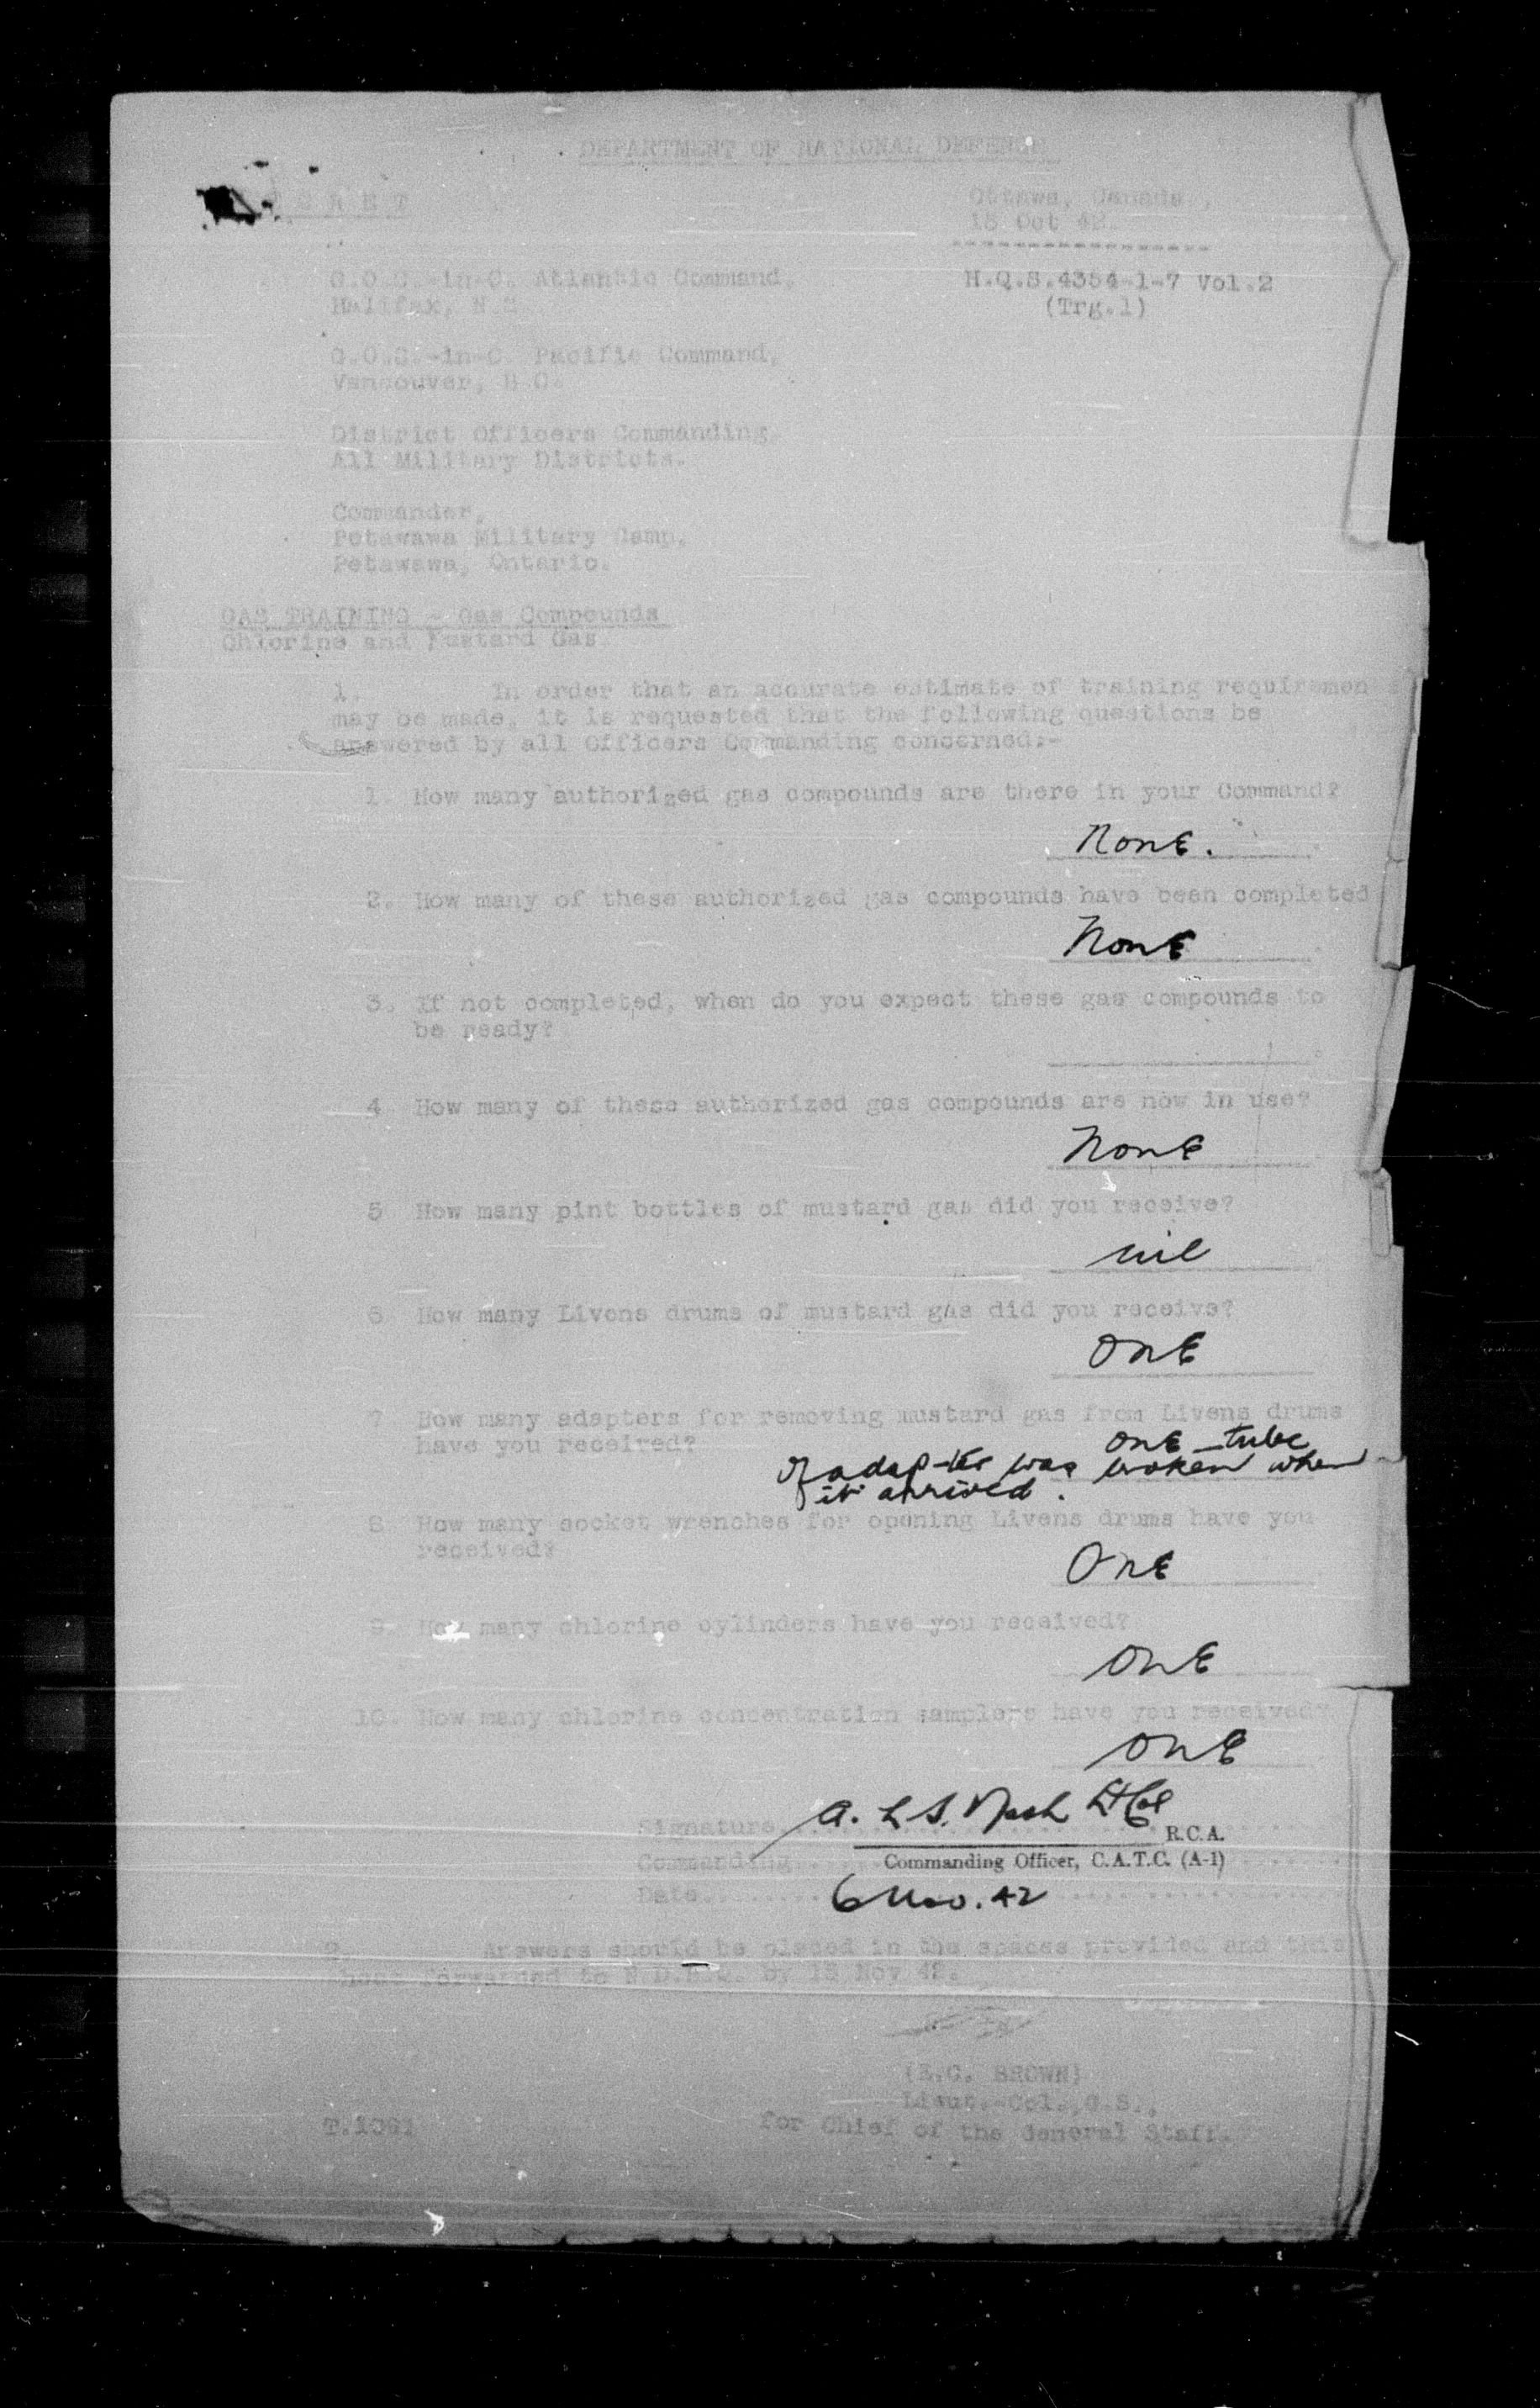 DEPARTMENT OF NATIONAL DEFENCE
SECRET
Ottawa, Canada,
15 Oct 42.
G.O.C.-in-C. Atlantic Command,
Halifax, N.S.
H.Q.S.4354-1-7 Vol.2
(Trg.1)
G.O.C.-in-C. Pacific Command,
Vancouver, B.C.
District Officers Commanding,
All Military Districts.
Commander,
Petawawa Military Camp,
Petawawa, Ontario.
GAS TRAINING - Gas Compounds
Chlorine and Mustard Gas.
1. In order that an accurate estimate of training requirements
may be made, it is requested that the following questions be
answered by all Officers Commanding concerned:-
1. How many authorized gas compounds are there in your Command?
None.
2. How many of these authorized gas compounds have been completed
None
3. If not completed, when do you expect these gas compounds to
be ready?
4. How many of these authorized gas compounds are now in use?
None
5. How many pint bottles of mustard gas did you receive?
nil
6. How many Livens drums of mustard gas did you receive?
One
7. How many adapters for removing mustard gas from Livens drums
have you received?
One tube
of adapter was broken when
it arrived.
8. How many socket wrenches for opening Livens drums have you
received?
One
9. How many chlorine cylinders have you received?
One
10. How many chlorine concentration samplers have you received?
One
Signature A. L S. Nash Lt Col
R.C.A.
Commanding Commanding Officer, C.A.T.C. (A-1)
Date 6 Nov. 42
2. Answers should be placed in the spaces provided and this
sheet forwarded to N.D.H.Q. by 15 Nov 42.
BROWN)
Lieut.-Col.,G.S.,
for Chief of the General Staff.